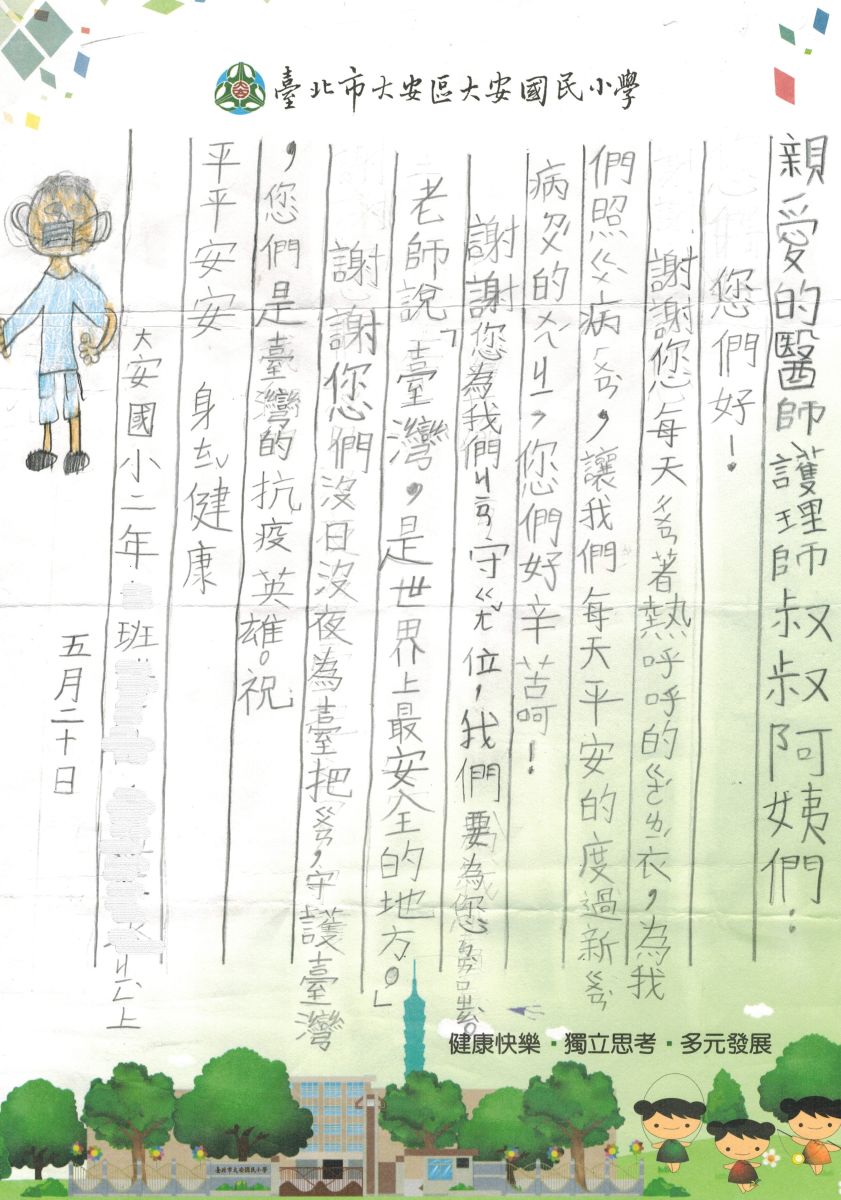 臺北市大安區大安國民小學
親愛的醫師護理師叔叔阿姨們：
您們好！
謝謝您每天著熱呼呼的衣，為我
們照ㄍㄨˋ病，讓我們每天平安的度過新ㄍㄨㄢ
病ㄉㄨˊ的ㄐㄧ，您們好辛苦呵！
謝謝您為我們ㄐㄧㄢ守ㄍㄤˇ位，我們要為您
老師說「臺灣，是世界上最安全的地方。」
謝謝您們沒日沒夜為臺把ㄍㄨㄢ，守護臺灣
，您們是臺灣的抗疫英雄。祝
平平安安 身ㄊㄧˇ健康
大安國小二年 班 ㄐㄧㄥˋ上
五月二十日
健康快樂▪獨立思考▪多元發展
臺北市大安國民小學